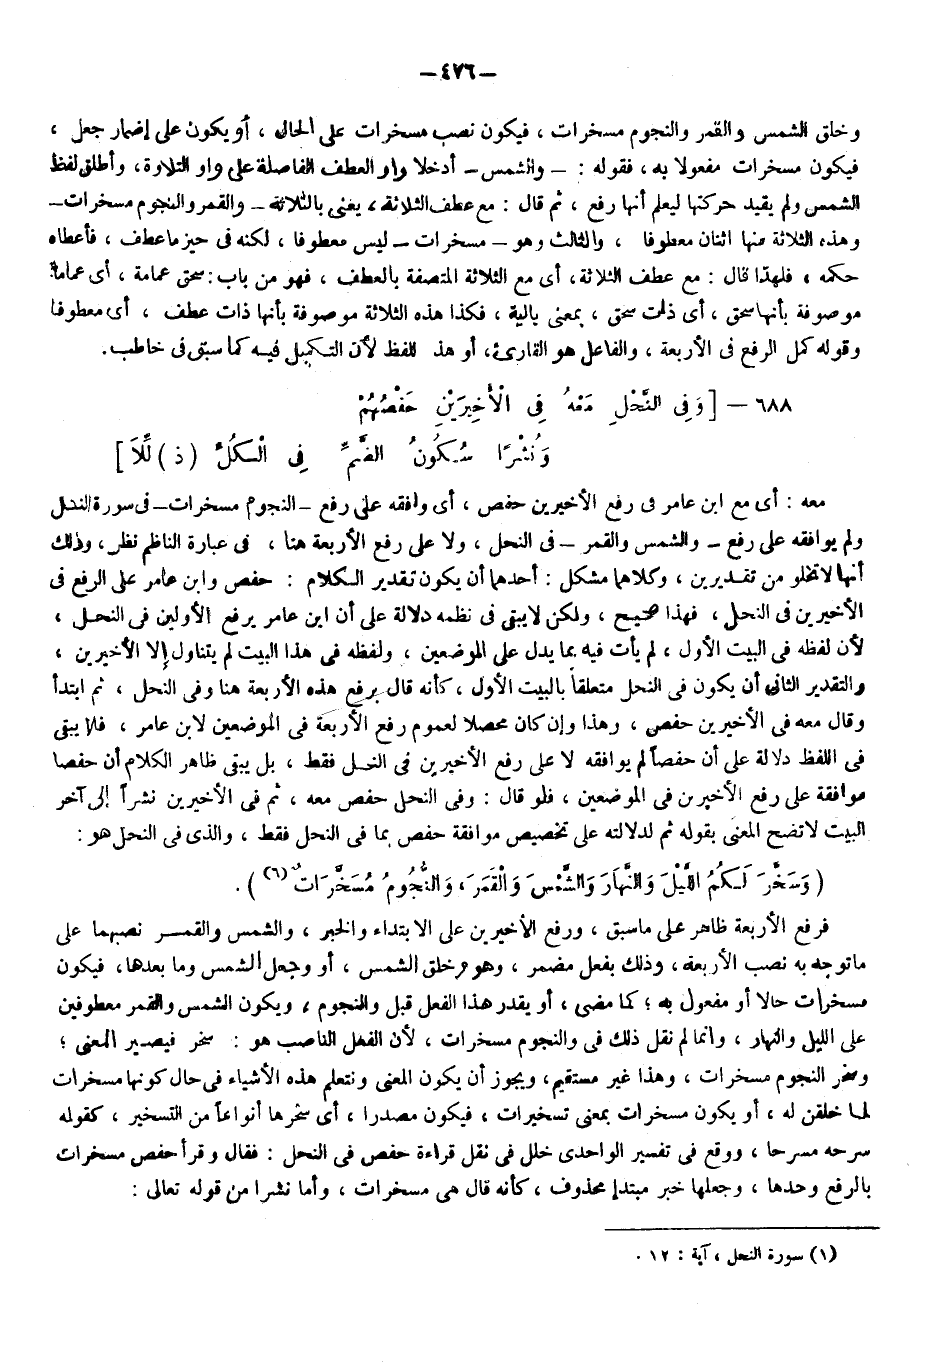 —٤٧٦—
وخلق الشمس والقمر والنجوم مسخرات ، فيكون نصب مسخرات على الحال ، أو يكون على إضمار جعل ،
فيكون مسخرات مفعولا به ، فقوله : — والشمس— أدخلا واو العطف الفاصلة على واو التلاوة، وأطلق لفظ
الشمس ولم يقيد حركتها ليعلم أنها رفع ، ثم قال : مع عطف الثلاثة ، يعنى بالثلاثة — والقمر والنجوم مسخرات—
وهذه الثلاثة منها اثنان معطوفا ، والثالث وهو — مسخرات — ليس معطوفا ، لكنه فى حيز ماعطف ، فأعطاه
حكمه ، فلهذا قال : مع عطف الثلاثة، أى مع الثلاثة المتصفة بالعطف ، فهو من باب: سحق عمامة ، أى عمامة
موصوفة بأنها سحق ، أى ذات سحق ، بمعنى بالية ، فكذا هذه الثلاثة موصوفة بأنها ذات عطف ، أى معطوفا
وقوله كمل الرفع فى الأربعة ، والفاعل هو القارئ، أو هذ للفظ لأن التكميل فيه كما سبق فى خاطب.
٦٨٨ — [ وَفِى النَّحْلِ مَعْهُ فِى الْأَخِيرَيْنِ حَفْصُهُمْ
وَنُشْرًا سُكُونُ الضَّمِّ فِى الْكُلِّ (ذ) لِّلاَ ]
معه : أى مع ابن عامر فى رفع الأخيرين حفص ، أى وافقه على رفع — النجوم مسخرات— فى سورة النحل
ولم يوافقه على رفع — والشمس والقمر — فى النحل ، ولا على رفع الأربعة هنا ، فى عبارة الناظم نظر ، وذلك
أنها لاتخلو من تقديرين ، وكلاهما مشكل : أحدهما أن يكون تقدير الكلام : حفص وابن عامر على الرفع فى
الأخيرين فى النحل ، فهذا صحيح ، ولكن لايبقى فى نظمه دلالة على أن ابن عامر يرفع الأولين فى النحل ،
لأن لفظه فى البيت الأول ، لم يأت فيه بما يدل على الموضعين ، ولفظه فى هذا البيت لم يتناول إلا الأخيرين ،
والتقدير الثانى أن يكون فى النحل متعلقاً بالبيت الأول ، كأنه قال يرفع هذه الأربعة هنا وفى النحل ، ثم ابتدأ
وقال معه فى الأخيرين حفص ، وهذا وإن كان محصلا لعموم رفع الأربعة فى الموضعين لابن عامر ، فلا يبقى
فى اللفظ دلالة على أن حفصاً لم يوافقه لا على رفع الأخيرين فى النحل فقط ، بل يبقى ظاهر الكلام أن حفصا
موافقة على رفع الأخيرين فى الموضعين ، فلو قال : وفى النحل حفص معه ، ثم فى الأخيرين نشراً إلى آخر
البيت لاتضح المعنى بقوله ثم لدلالته على تخصيص موافقة حفص بما فى النحل فقط ، والذى فى النحل هو :
( وَسَخَّرَ لَكُمُ اللَّيْلَ وَالنَّهَارَ وَالشَّمْسَ وَالْقَمَرَ، وَالنُّجُومُ مُسَخَّرَاتٌ (٦) ) .
فرفع الأربعة ظاهر على ماسبق ، ورفع الأخيرين على الابتداء والخبر ، والشمس والقمر نصبهما على
ماتوجه به نصب الأربعة، وذلك بفعل مضمر ، وهو وخلق الشمس ، أو وجعل الشمس وما بعدها، فيكون
مسخرات حالا أو مفعول به ؛ كما مضى ، أو يقدر هذا الفعل قبل والنجوم ، ويكون الشمس والقمر معطوفين
على الليل والنهار ، وانما لم نقل ذلك فى والنجوم مسخرات ، لأن الفعل الناصب هو : سخر فيصير المعنى ؛
وسخر النجوم مسخرات ، وهذا غير مستقيم، ويجوز أن يكون المعنى ونتعلم هذه الأشياء فى حال كونها مسخرات
لما خلقن له ، أو يكون مسخرات بمعنى تسخيرات ، فيكون مصدرا ، أى سخرها أنواعاً من التسخير ، كقوله
سرحه مسرحا ، ووقع فى تفسير الواحدى خلل فى نقل قراءة حفص فى النحل : فقال وقرأ حفص مسخرات
بالرفع وحدها ، وجعلها خبر مبتدإ محذوف ، كأنه قال هى مسخرات ، وأما نشرا من قوله تعالى :
(١) سورة النحل ، آية : ١٢ .